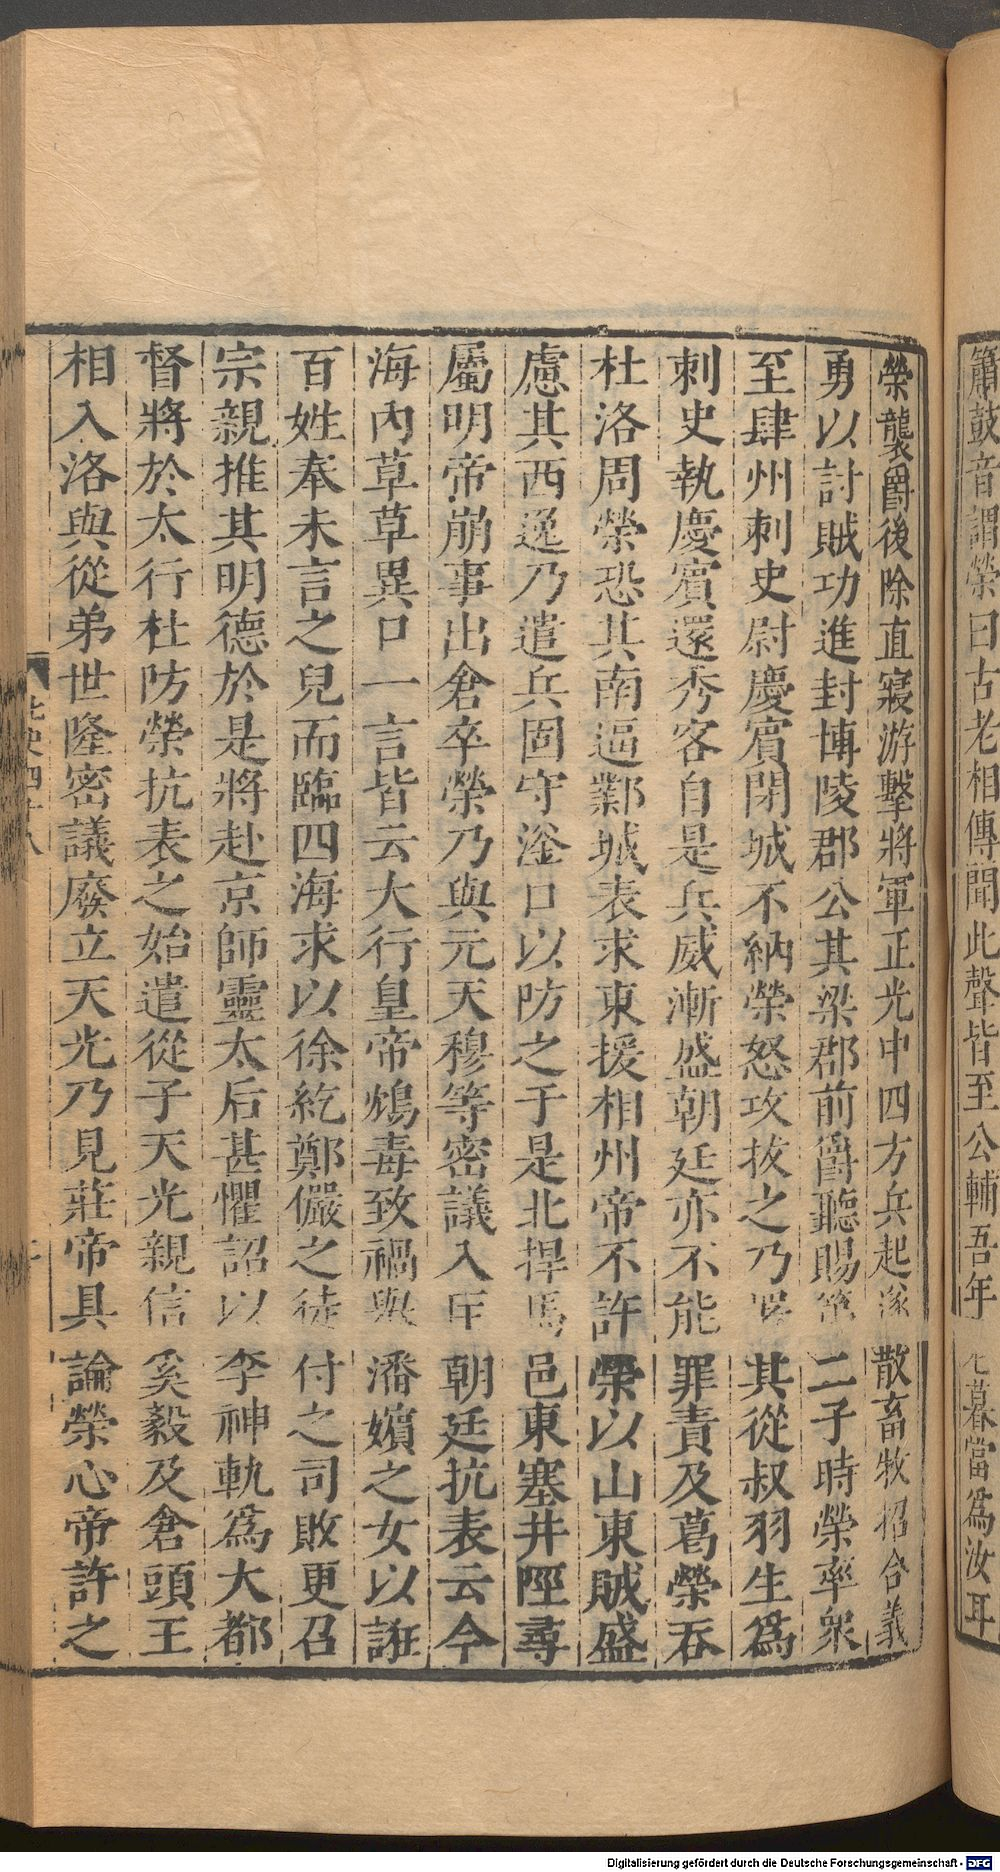 簫鼓音謂榮曰古老相傳聞此聲皆至公輔吾年老暮當為汝耳
榮襲爵後除直寢游擊將軍正光中四方兵起遂散畜牧招合義
勇以討賊功進封博陵郡公其梁郡前爵聽賜第二子時榮率眾
至肆州刺史尉慶賓閉城不納榮怒攻拔之乃署其從叔羽生為
刺史執慶賓還秀容自是兵威漸盛朝廷亦不能罪責及葛榮吞
杜洛周榮恐其南逼鄴城表求東援相州帝不許榮以山東賊盛
慮其西逸乃遣兵固守滏口以防之于是北捍馬邑東塞井陘尋
屬明帝崩事出倉卒榮乃與元天穆等密議入匡朝廷抗表云今
海內草草異口一言皆云大行皇帝鴆毒致禍與潘嬪之女以誑
百姓奉未言之兒而臨四海求以徐紇鄭儼之徒付之司敗更召
宗親推其明德於是將赴京師靈太后甚懼詔以李神軌為大都
督將於太行杜防榮抗表之始遣從子天光親信奚毅及倉頭王
相入洛與從弟世隆密議廢立天光乃見莊帝具論榮心帝許之
北史四十八
Digitalisierung gefördert durch die Deutsche Forschungsgemeinschaft - DFG